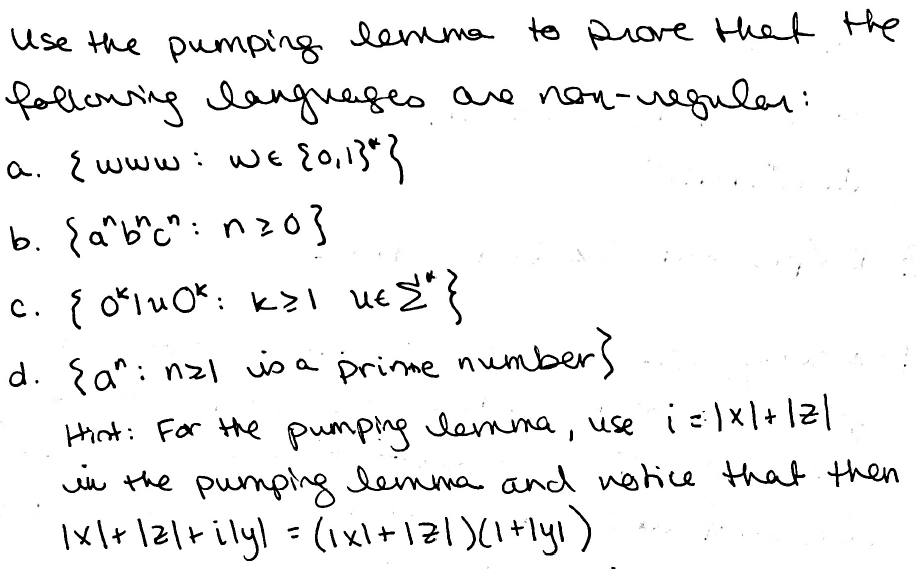 Use the pumping lemma to prove that the
following languages are non-regular:
a. { www : w ∈ {0,1}* }
b. { aⁿbⁿcⁿ : n ≥ 0 }
c. { 0ᵏ1u0ᵏ : k ≥ 1 u ∈ Σ* }
d. { aⁿ : n ≥ 1 is a prime number }
Hint: For the pumping lemma, use i = |x| + |z|
in the pumping lemma and notice that then
|x| + |z| + i|y| = (|x| + |z|)(1 + |y|)